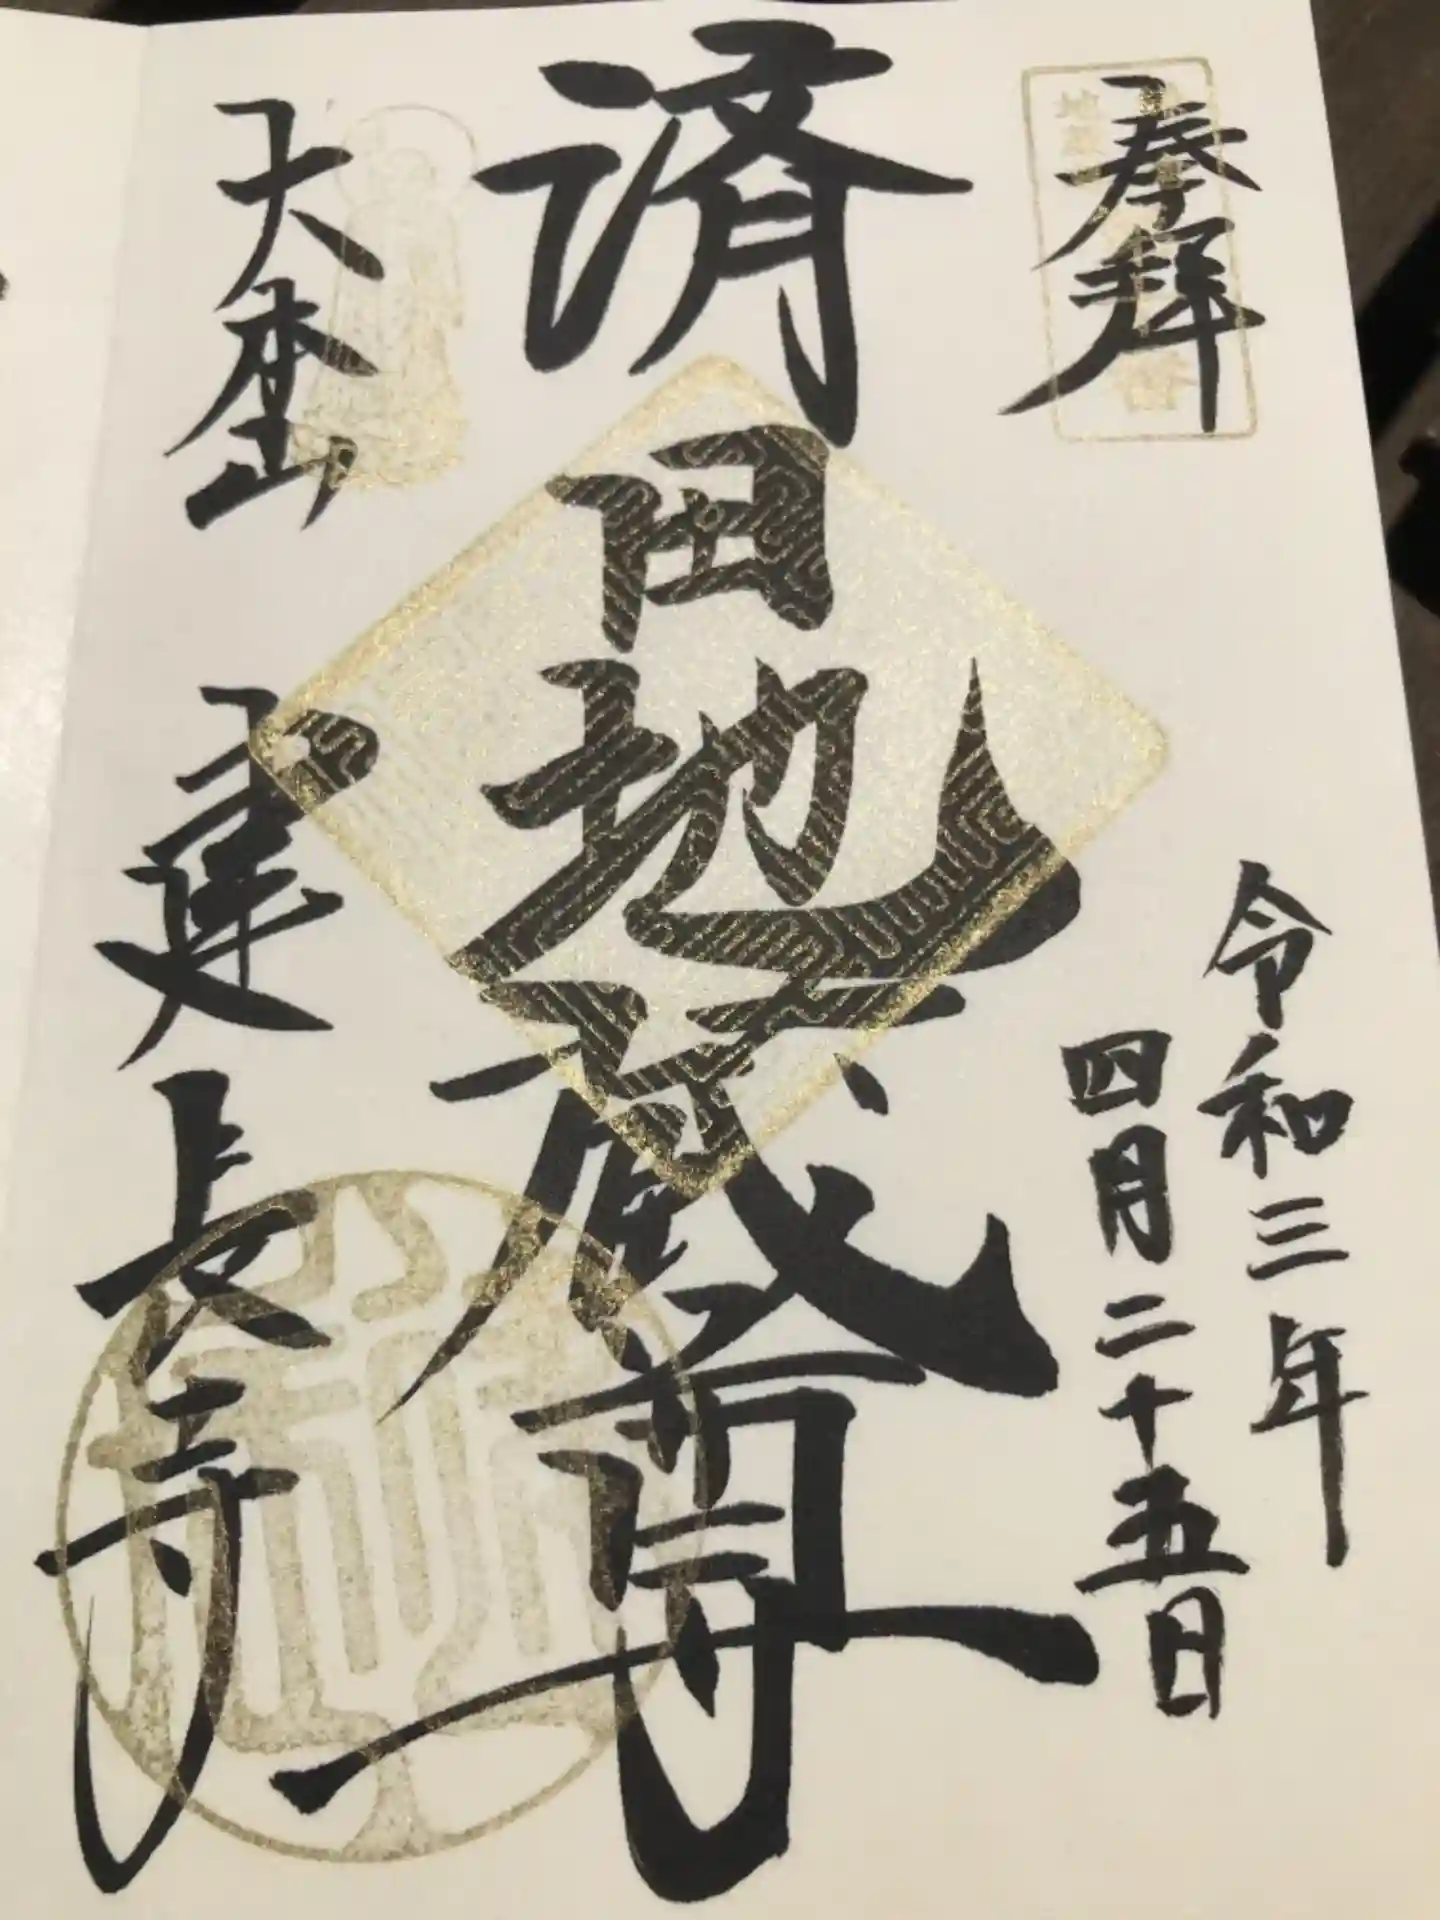 奉拝
令和三年
四月二十五日
済田地蔵尊
大本山 建長寺